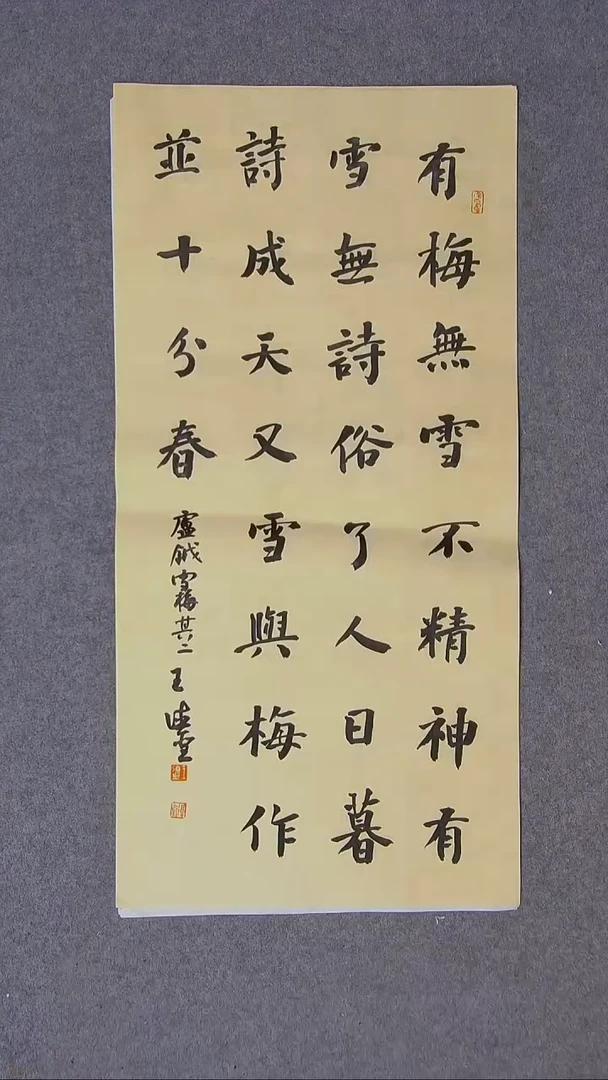 有梅無雪不精神有
雪無詩俗了人日暮
詩成天又雪與梅作
並十分春
盧鉞雪梅其二 王